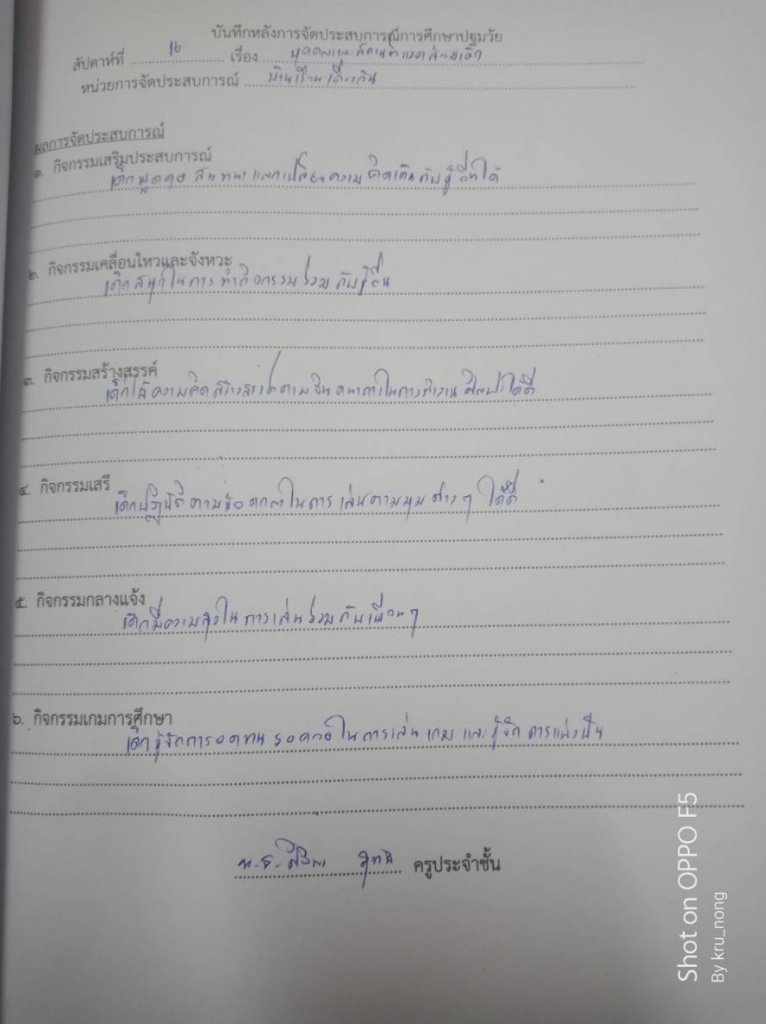 บันทึกหลังการจัดประสบการณ์การศึกษาปฐมวัย
สัปดาห์ที่ 16 เรื่อง บุคคลและสถานที่แวดล้อมเด็ก
หน่วยการจัดประสบการณ์ บ้านเรือนเคียงกัน
ผลการจัดประสบการณ์
๑. กิจกรรมเสริมประสบการณ์
เด็กพูดคุย สนทนา แลกเปลี่ยนความคิดเห็นกับผู้อื่นได้
๒. กิจกรรมเคลื่อนไหวและจังหวะ
เด็กสนุกในการทำกิจกรรมร่วมกับผู้อื่น
๓. กิจกรรมสร้างสรรค์
เด็กใช้ความคิดสร้างสรรค์ตามจินตนาการในการทำงานศิลปะได้ดี
๔. กิจกรรมเสรี
เด็กปฏิบัติตามข้อตกลงในการเล่นตามมุมต่างๆ ได้ดี
๕. กิจกรรมกลางแจ้ง
เด็กมีความสุขในการเล่นร่วมกับเพื่อนๆ
๖. กิจกรรมเกมการศึกษา
เด็กรู้จักการอดทน รอคอยในการเล่นเกม และรู้จักการแบ่งปัน
ครูประจำชั้น
Shot on OPPO F5
By kru_nong